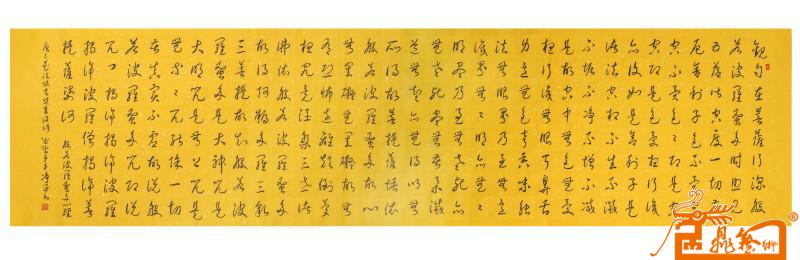 観自在菩薩行深般
若波羅蜜多時照見
五蘊皆空度一切苦
厄舍利子色不異空
空不異色色即是空
空即是色受想行識
亦復如是舍利子是
諸法空相不生不滅
不垢不淨不增不減
是故空中無色無受
想行識無眼耳鼻舌
身意無色聲香味觸
法無眼界乃至無意
識界無無明亦無無
明盡乃至無老死亦
無老死盡無苦集滅
道無智亦無得以無
所得故菩提薩埵依
般若波羅蜜多故心
無罣礙無罣礙故無
有恐怖遠離顛倒夢
想究竟涅槃三世諸
佛依般若波羅蜜多
故得阿耨多羅三藐
三菩提故知般若波
羅蜜多是大神咒是
大明咒是無上咒是
無等等咒能除一切
苦真實不虛故說般
若波羅蜜多咒即說
咒曰揭諦揭諦波羅
揭諦波羅僧揭諦菩
提薩婆訶 般若波羅蜜多心經
鼎藝術